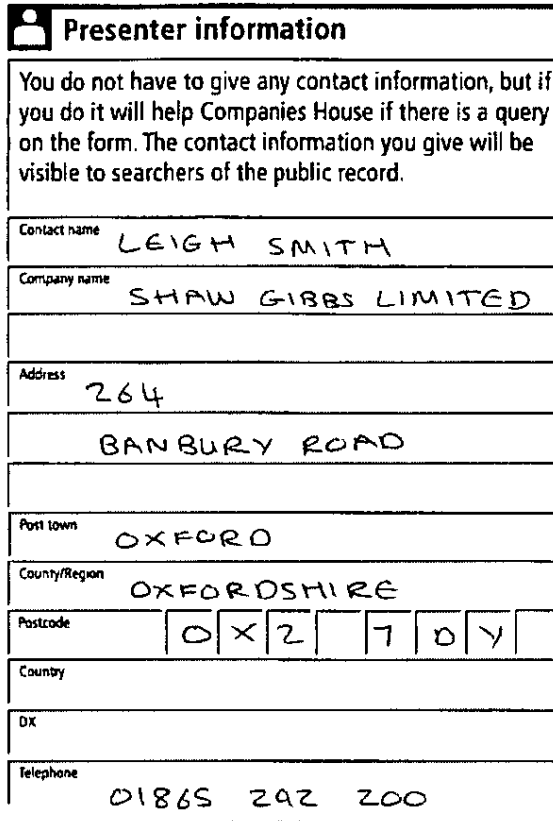 Presenter information
You do not have to give any contact information, but if
you do it will help Companies House if there is a query
on the form. The contact information you give will be
visible to searchers of the public record.
Contact name LEIGH SMITH
Company name SHAW GIBBS LIMITED
Address 264
BANBURY ROAD
Post town OXFORD
County/Region OXFORDSHIRE
Postcode OX2 7DY
Country
DX
Telephone 01865 292 200